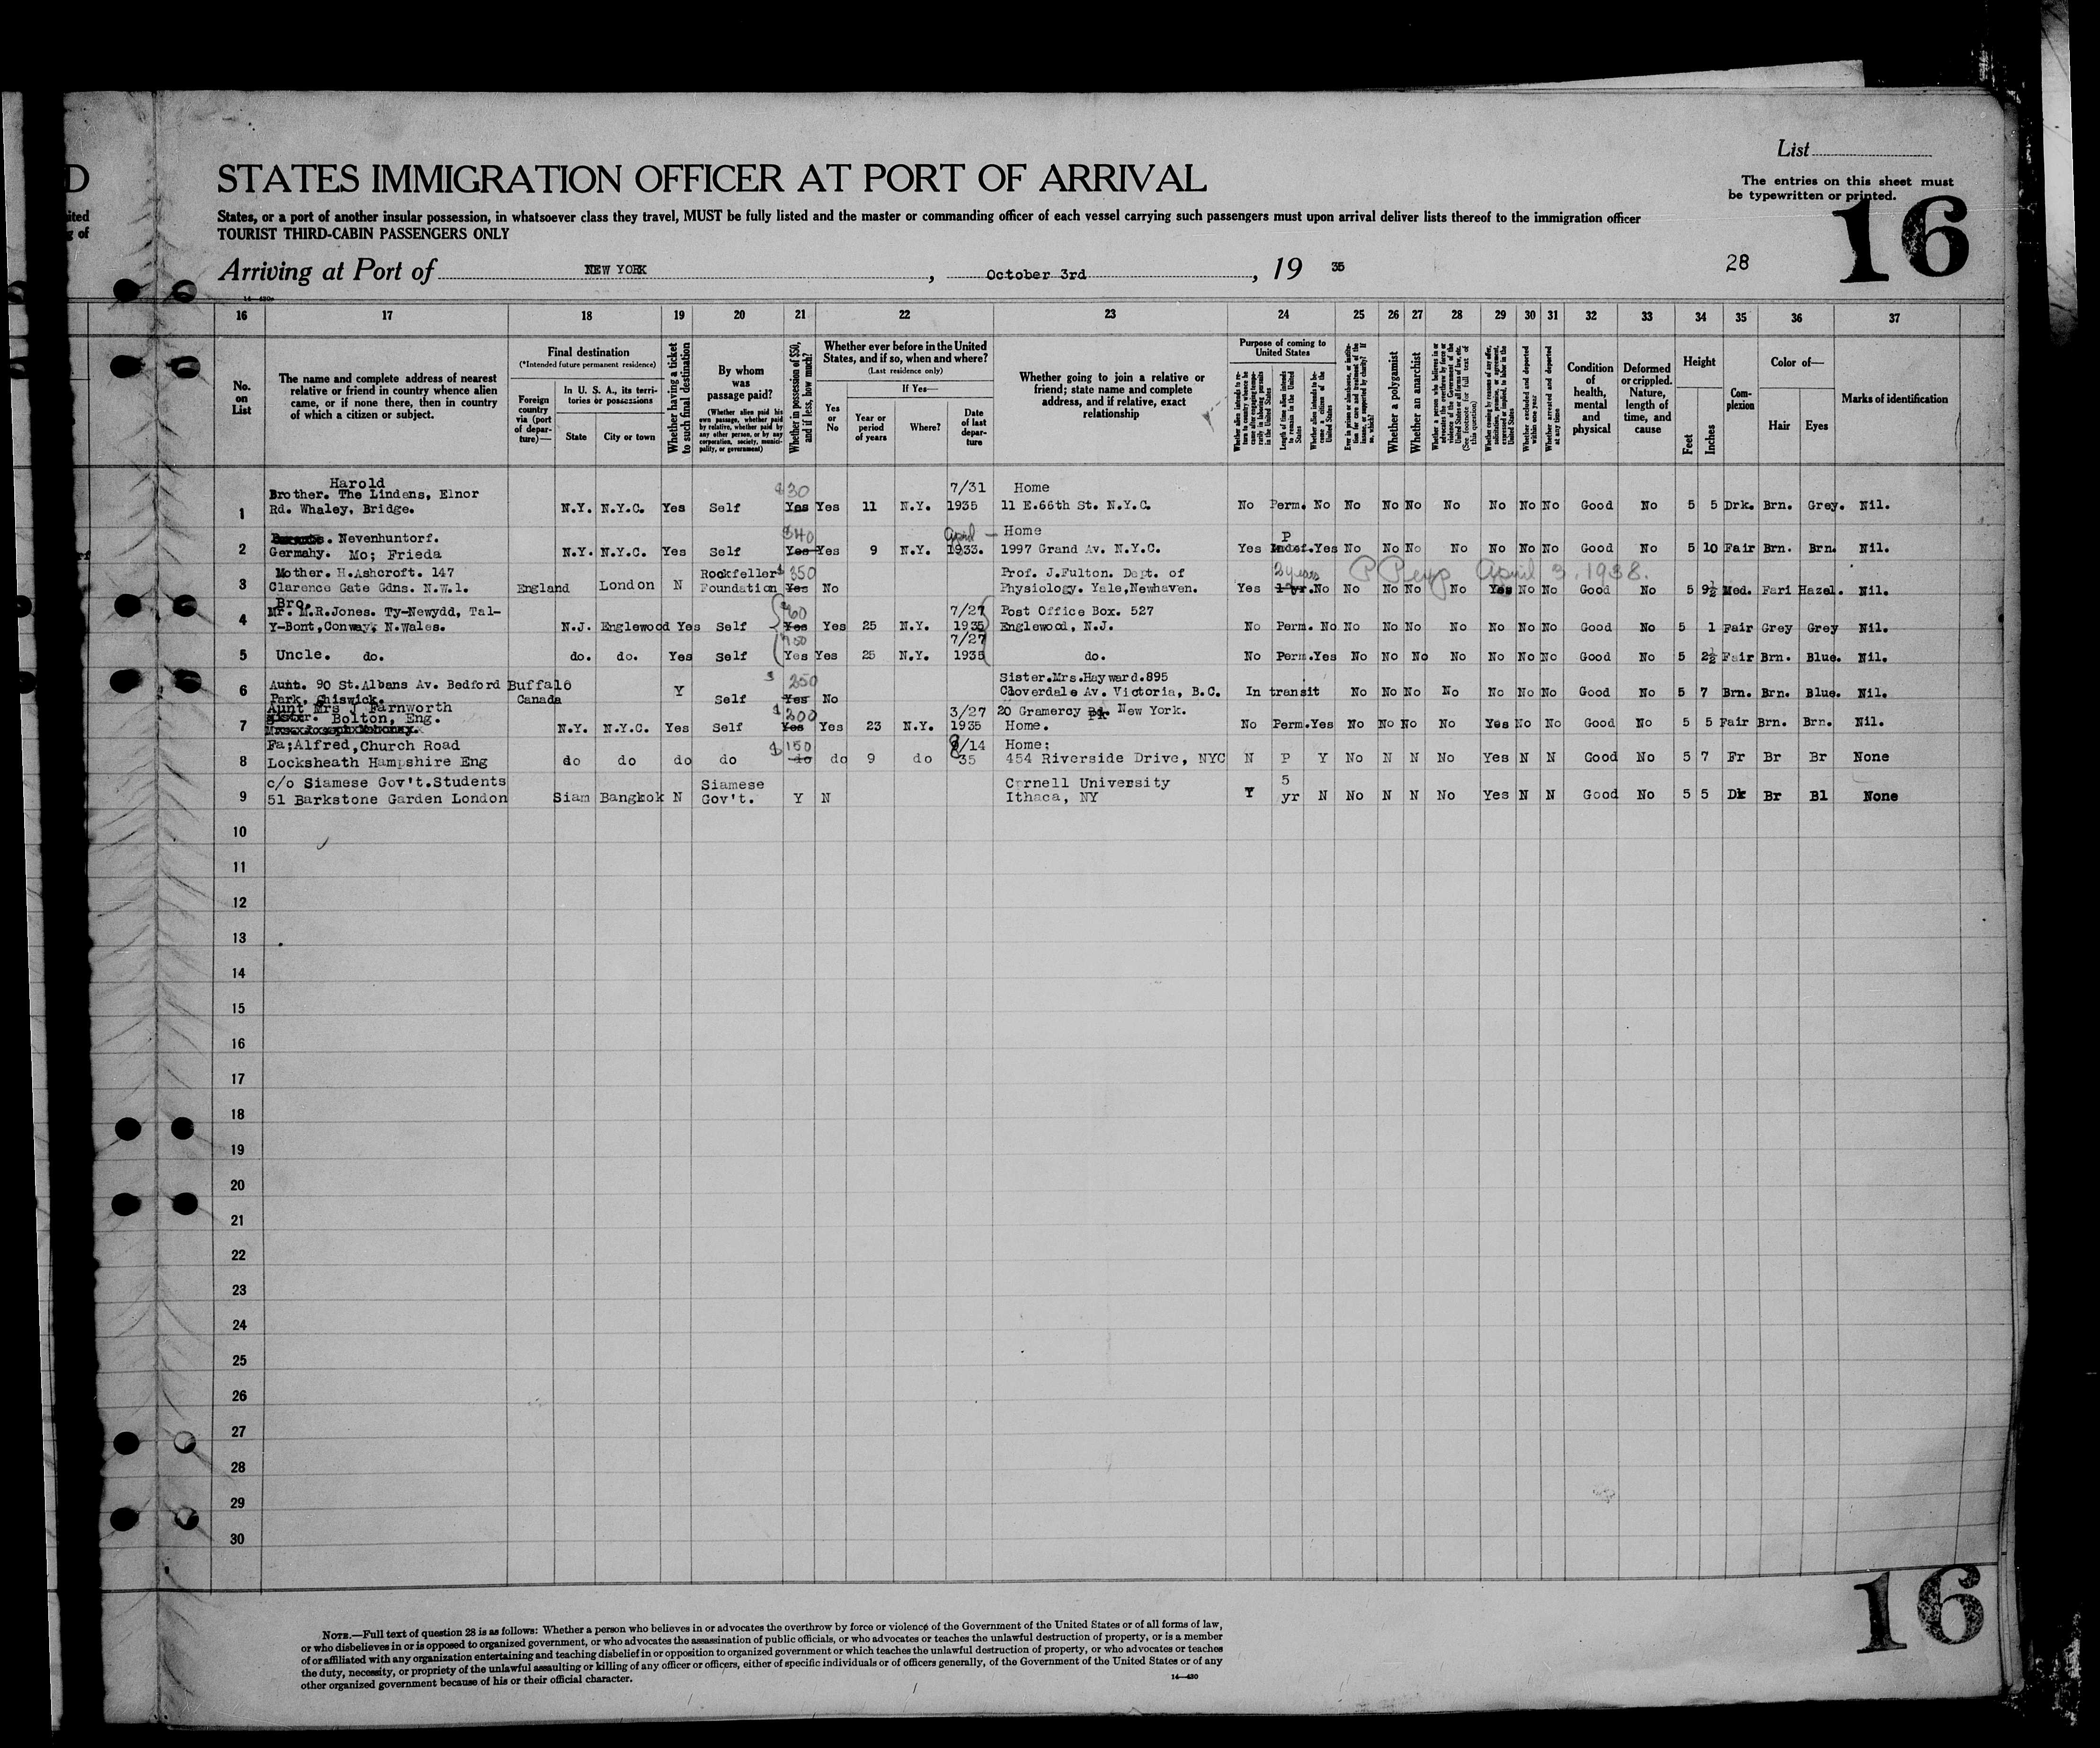 List
STATES IMMIGRATION OFFICER AT PORT OF ARRIVAL
The entries on this sheet must
be typewritten or printed.
16
States, or a port of another insular possession, in whatsoever class they travel, MUST be fully listed and the master or commanding officer of each vessel carrying such passengers must upon arrival deliver lists thereof to the immigration officer
TOURIST THIRD-CABIN PASSENGERS ONLY
Arriving at Port of NEW YORK, October 3rd, 19 35
28
16 17 18 19 20 21 22 23 24 25 26 27 28 29 30 31 32 33 34 35 36 37
No. on List
The name and complete address of nearest relative or friend in country whence alien came, or if none there, then in country of which a citizen or subject.
Final destination
(*Intended future permanent residence)
Foreign country via (port of departure)—
In U. S. A., its territories or possessions
State City or town
Whether having a ticket to such final destination
By whom was passage paid?
(Whether alien paid his own passage, whether paid by relative, whether paid by any other person, or by any corporation, society, municipality, or government)
Whether in possession of $50, and if less, how much?
Whether ever before in the United States, and if so, when and where?
(Last residence only)
Yes or No
If Yes—
Year or period of years Where? Date of last departure
Whether going to join a relative or friend; state name and complete address, and if relative, exact relationship
Purpose of coming to United States
Length of time alien intends to remain in the United States
Whether alien intends to become a citizen of the United States
Whether a polygamist
Whether an anarchist
Whether excluded and deported within one year
Whether arrested and deported at any time
Condition of health, mental and physical
Deformed or crippled. Nature, length of time, and cause
Height
Feet Inches
Complexion
Color of—
Hair Eyes
Marks of identification
Harold $30 7/31 Home
Brother. The Lindens, Elnor
1 Rd. Whaley. Bridge. N.Y. N.Y.C. Yes Self Yes Yes 11 N.Y. 1935 11 E.66th St. N.Y.C. No Perm. No No No No No No No No Good No 5 5 Drk. Brn. Grey. Nil.
Nevenhuntorf. $40 April Home P
2 Germany. Mo; Frieda N.Y. N.Y.C. Yes Self Yes Yes 9 N.Y. 1933. 1997 Grand Av. N.Y.C. Yes Indef. Yes No No No No No No No Good No 5 10 Fair Brn. Brn. Nil.
Mother. H.Ashcroft. 147 Rockfeller $350 Prof. J.Fulton. Dept. of 2 years April 3, 1938.
3 Clarence Gate Gdns. N.W.1. England London N Foundation Yes No Physiology. Yale,Newhaven. Yes 1 yr. No No No No No Yes No No Good No 5 9½ Med. Fari Hazel. Nil.
Bro.
Mr. M.R.Jones. Ty-Newydd, Tal- 7/27 Post Office Box. 527
4 Y-Bont,Conway, N.Wales. N.J. Englewood Yes Self Yes Yes 25 N.Y. 1935 Englewood, N.J. No Perm. No No No No No No No No Good No 5 1 Fair Grey Grey Nil.
7/27
5 Uncle. do. do. do. Yes Self Yes Yes 25 N.Y. 1935 do. No Perm. Yes No No No No No No No Good No 5 2½ Fair Brn. Blue. Nil.
Sister.Mrs.Hayward.895
Aunt. 90 St.Albans Av. Bedford Buffalo $250
6 Park. Chiswick. Canada Y Self Yes No Cloverdale Av. Victoria, B.C. In transit No No No No No No No Good No 5 7 Brn. Brn. Blue. Nil.
Aunt Mrs J Farnworth $200 3/27 20 Gramercy Pk. New York.
Sister. Bolton, Eng.
7 N.Y. N.Y.C. Yes Self Yes Yes 23 N.Y. 1935 Home. No Perm. Yes No No No No Yes No No Good No 5 5 Fair Brn. Brn. Nil.
Fa;Alfred,Church Road $150 8/14 Home:
8 Locksheath Hampshire Eng do do do do do do 9 do 35 454 Riverside Drive, NYC N P Y No N N No Yes N N Good No 5 7 Fr Br Br None
c/o Siamese Gov't.Students Siamese Cornell University 5
9 51 Barkstone Garden London Siam Bangkok N Gov't. Y N Ithaca, NY Y yr N No N N No Yes N N Good No 5 5 Dk Br Bl None
10
11
12
13
14
15
16
17
18
19
20
21
22
23
24
25
26
27
28
29
30
16
NOTE.—Full text of question 28 is as follows: Whether a person who believes in or advocates the overthrow by force or violence of the Government of the United States or of all forms of law,
or who disbelieves in or is opposed to organized government, or who advocates the assassination of public officials, or who advocates or teaches the unlawful destruction of property, or is a member
of or affiliated with any organization entertaining and teaching disbelief in or opposition to organized government or which teaches the unlawful destruction of property, or who advocates or teaches
the duty, necessity, or propriety of the unlawful assaulting or killing of any officer or officers, either of specific individuals or of officers generally, of the Government of the United States or of any
other organized government because of his or their official character.
14—430